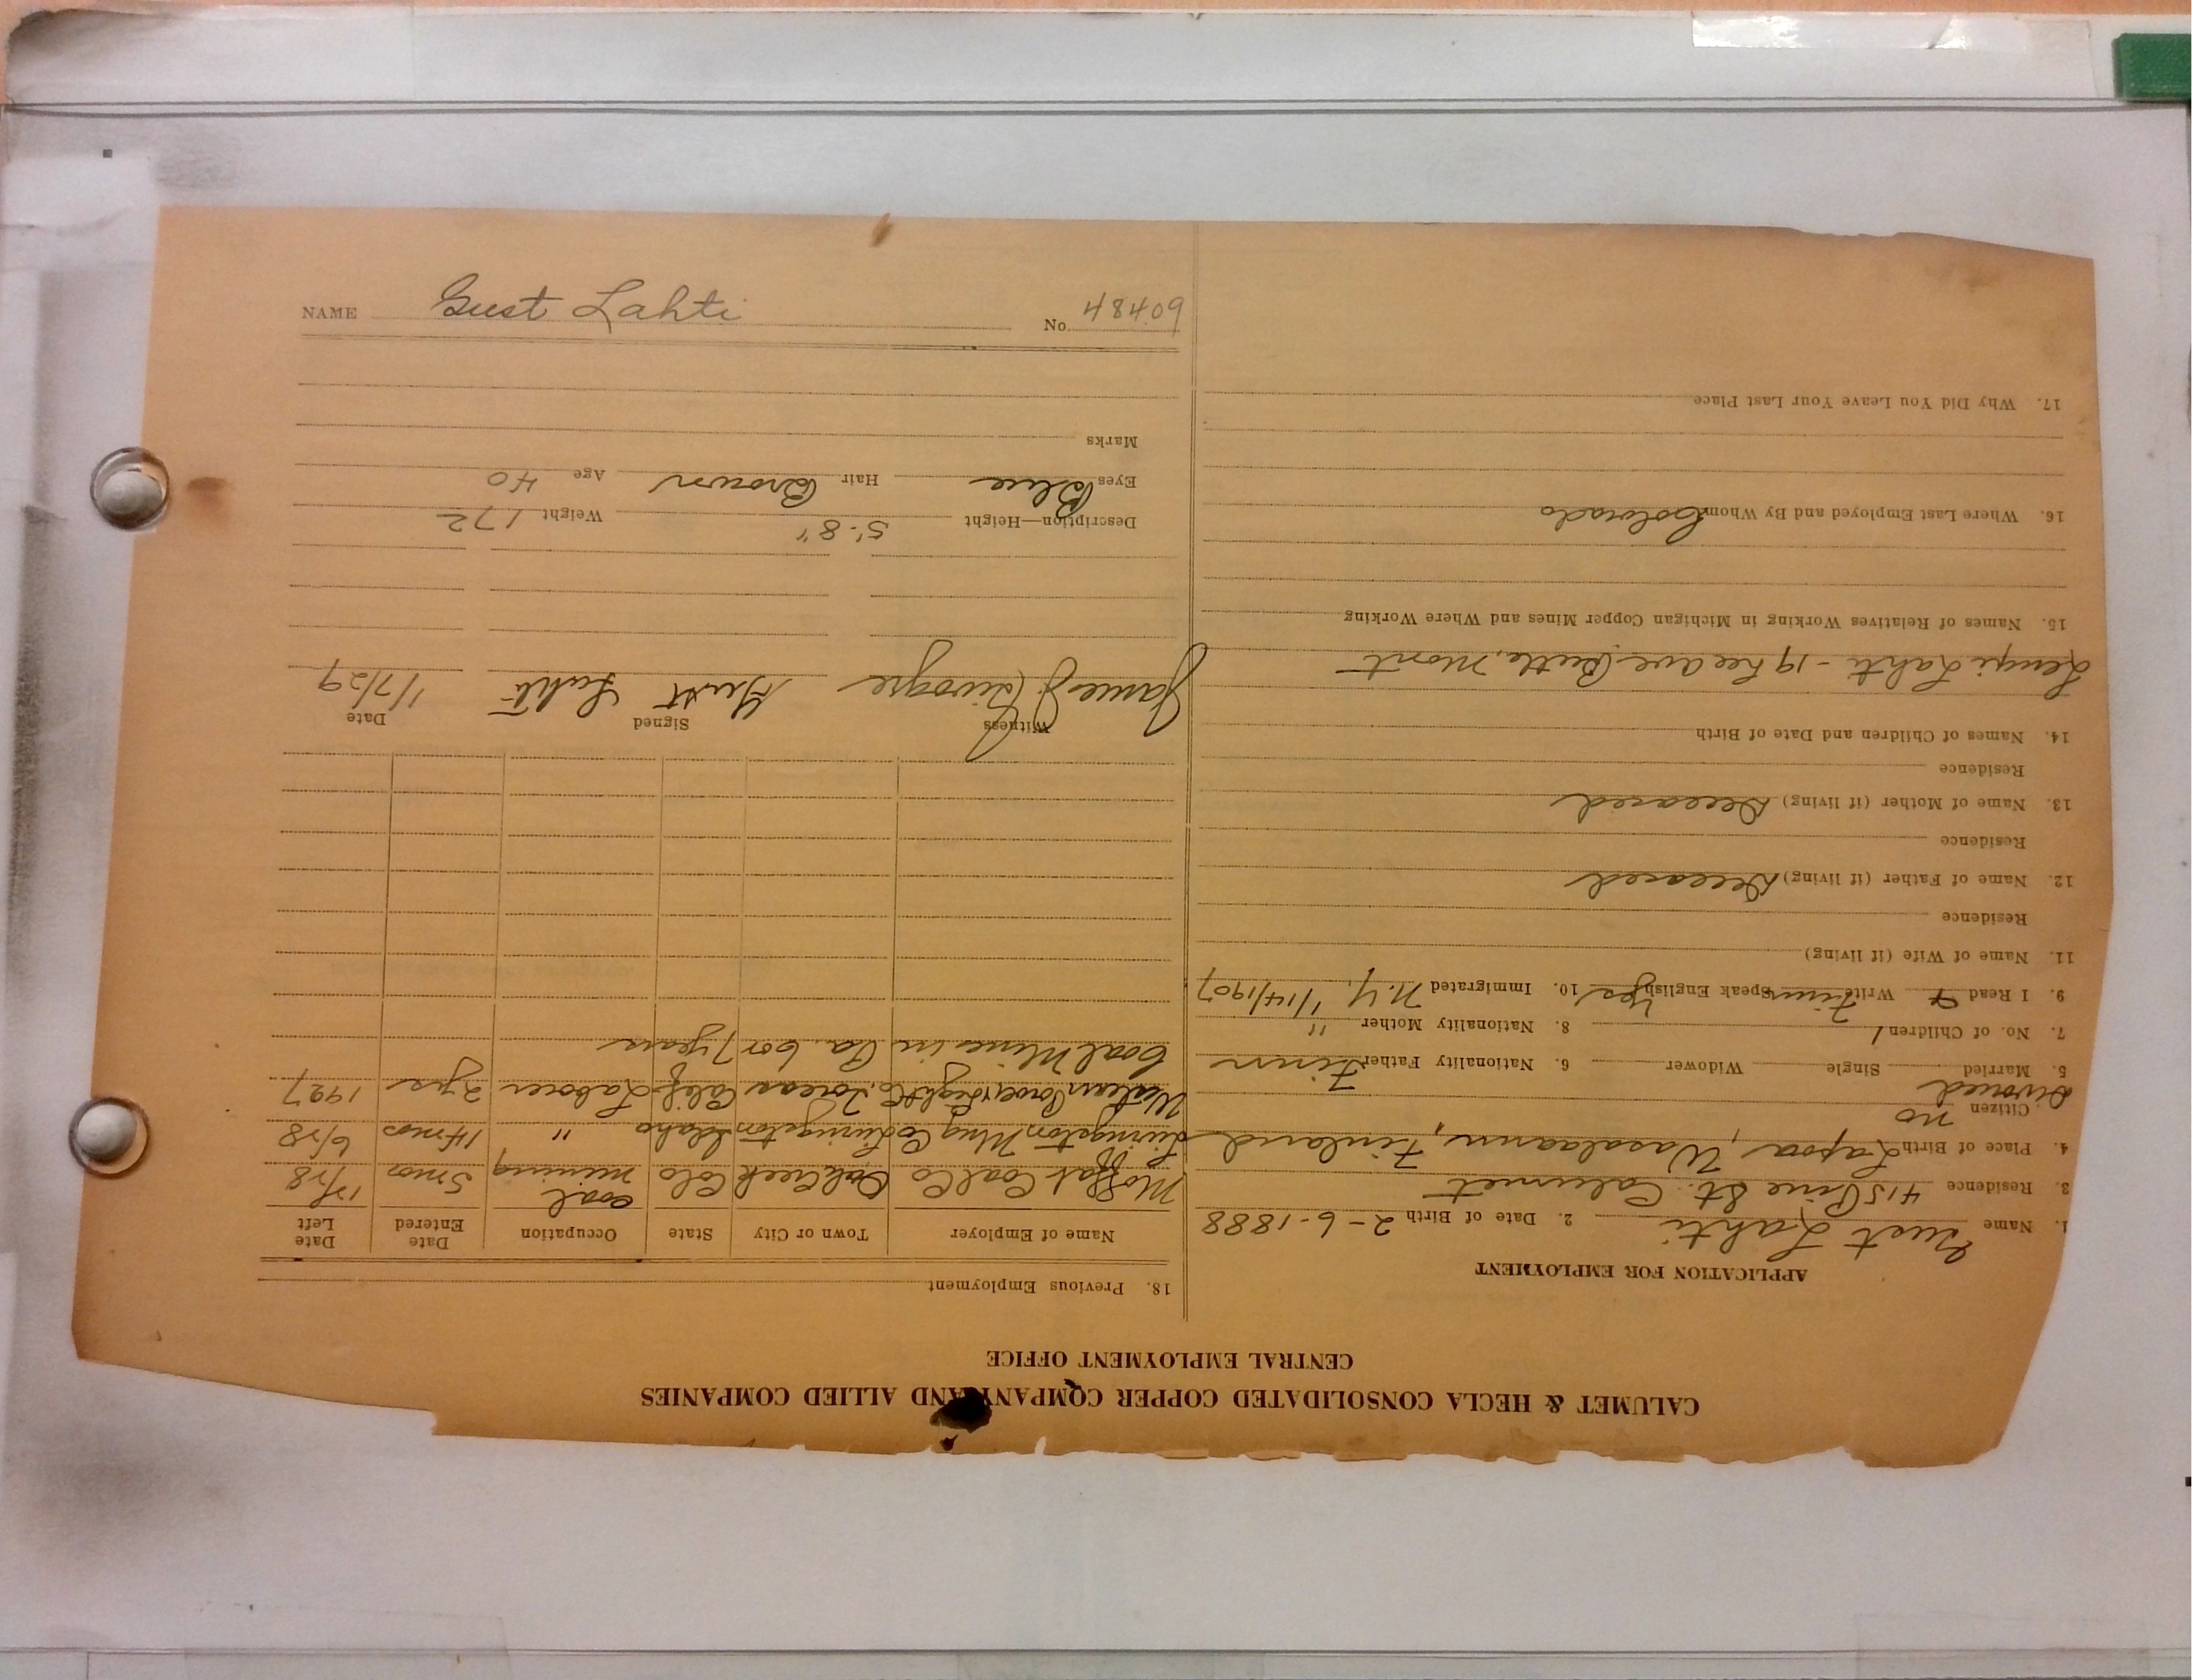 CALUMET & HECLA CONSOLIDATED COPPER COMPANY AND ALLIED COMPANIES
CENTRAL EMPLOYMENT OFFICE
APPLICATION FOR EMPLOYMENT
1. Name Gust Lahti 2. Date of Birth 2-6-1888
3. Residence 415 Pine St. Calumet
4. Place of Birth Lapoa, Wasalaann, Finland
Citizen no
Divorced
5. Married Single Widower 6. Nationality Father Finn
7. No. of Children 1 8. Nationality Mother "
9. I Read & Write Finn Speak English Yes 10. Immigrated N.Y. 1/14/1907
11. Name of Wife (if living)
Residence
12. Name of Father (if living) Deceased
Residence
13. Name of Mother (if living) Deceased
Residence
14. Names of Children and Date of Birth
Lahti - 19 Lee ave Butte, Mont
15. Names of Relatives Working in Michigan Copper Mines and Where Working
16. Where Last Employed and By Whom Colorado
17. Why Did You Leave Your Last Place
18. Previous Employment
Name of Employer Town or City State Occupation Date Entered Date Left
Moffat Coal Co Oak Creek Colo Coal mining 5 mos 12/28
Livingston Mng Co Livingston Idaho " 14 mos 6/28
Western Power Light Co. Calif Laborer 2 yrs 1927
Coal Mines in Pa. 6 or 7 years
Witness Signed Date
James J. Gust Lahti 1/7/29
Description—Height 5'-8" Weight 172
Eyes Blue Hair Brown Age 40
Marks
NAME Gust Lahti No. 48409